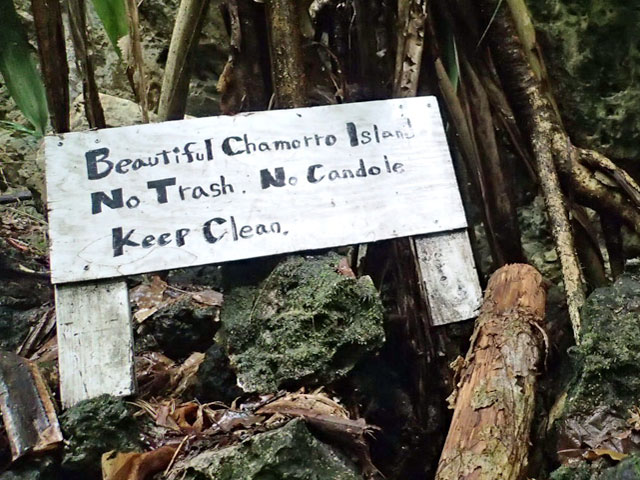 Beautiful Chamorro Island
No Trash. No Candole
Keep Clean.